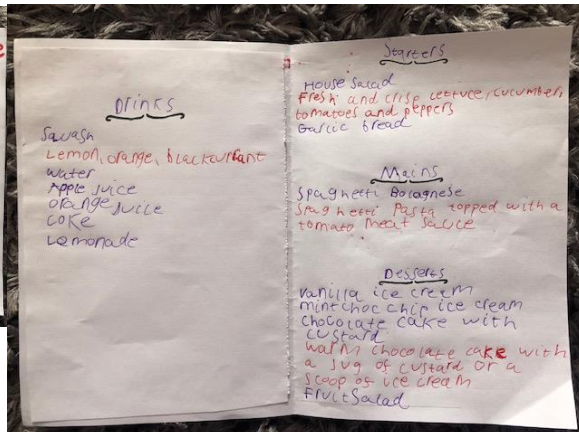 Drinks
Squash
Lemon, orange, blackcurrant
water
Apple juice
orange juice
coke
Lemonade
Starters
House Salad
Fresh and crisp lettuce, cucumber,
tomatoes and peppers
Garlic bread
Mains
Spaghetti Bolagnese
Spaghetti Pasta topped with a
tomato meat sauce
Desserts
vanilla ice cream
mint choc chip ice cream
chocolate cake with
custard
warm chocolate cake with
a jug of custard or a
scoop of ice cream
Fruit Salad